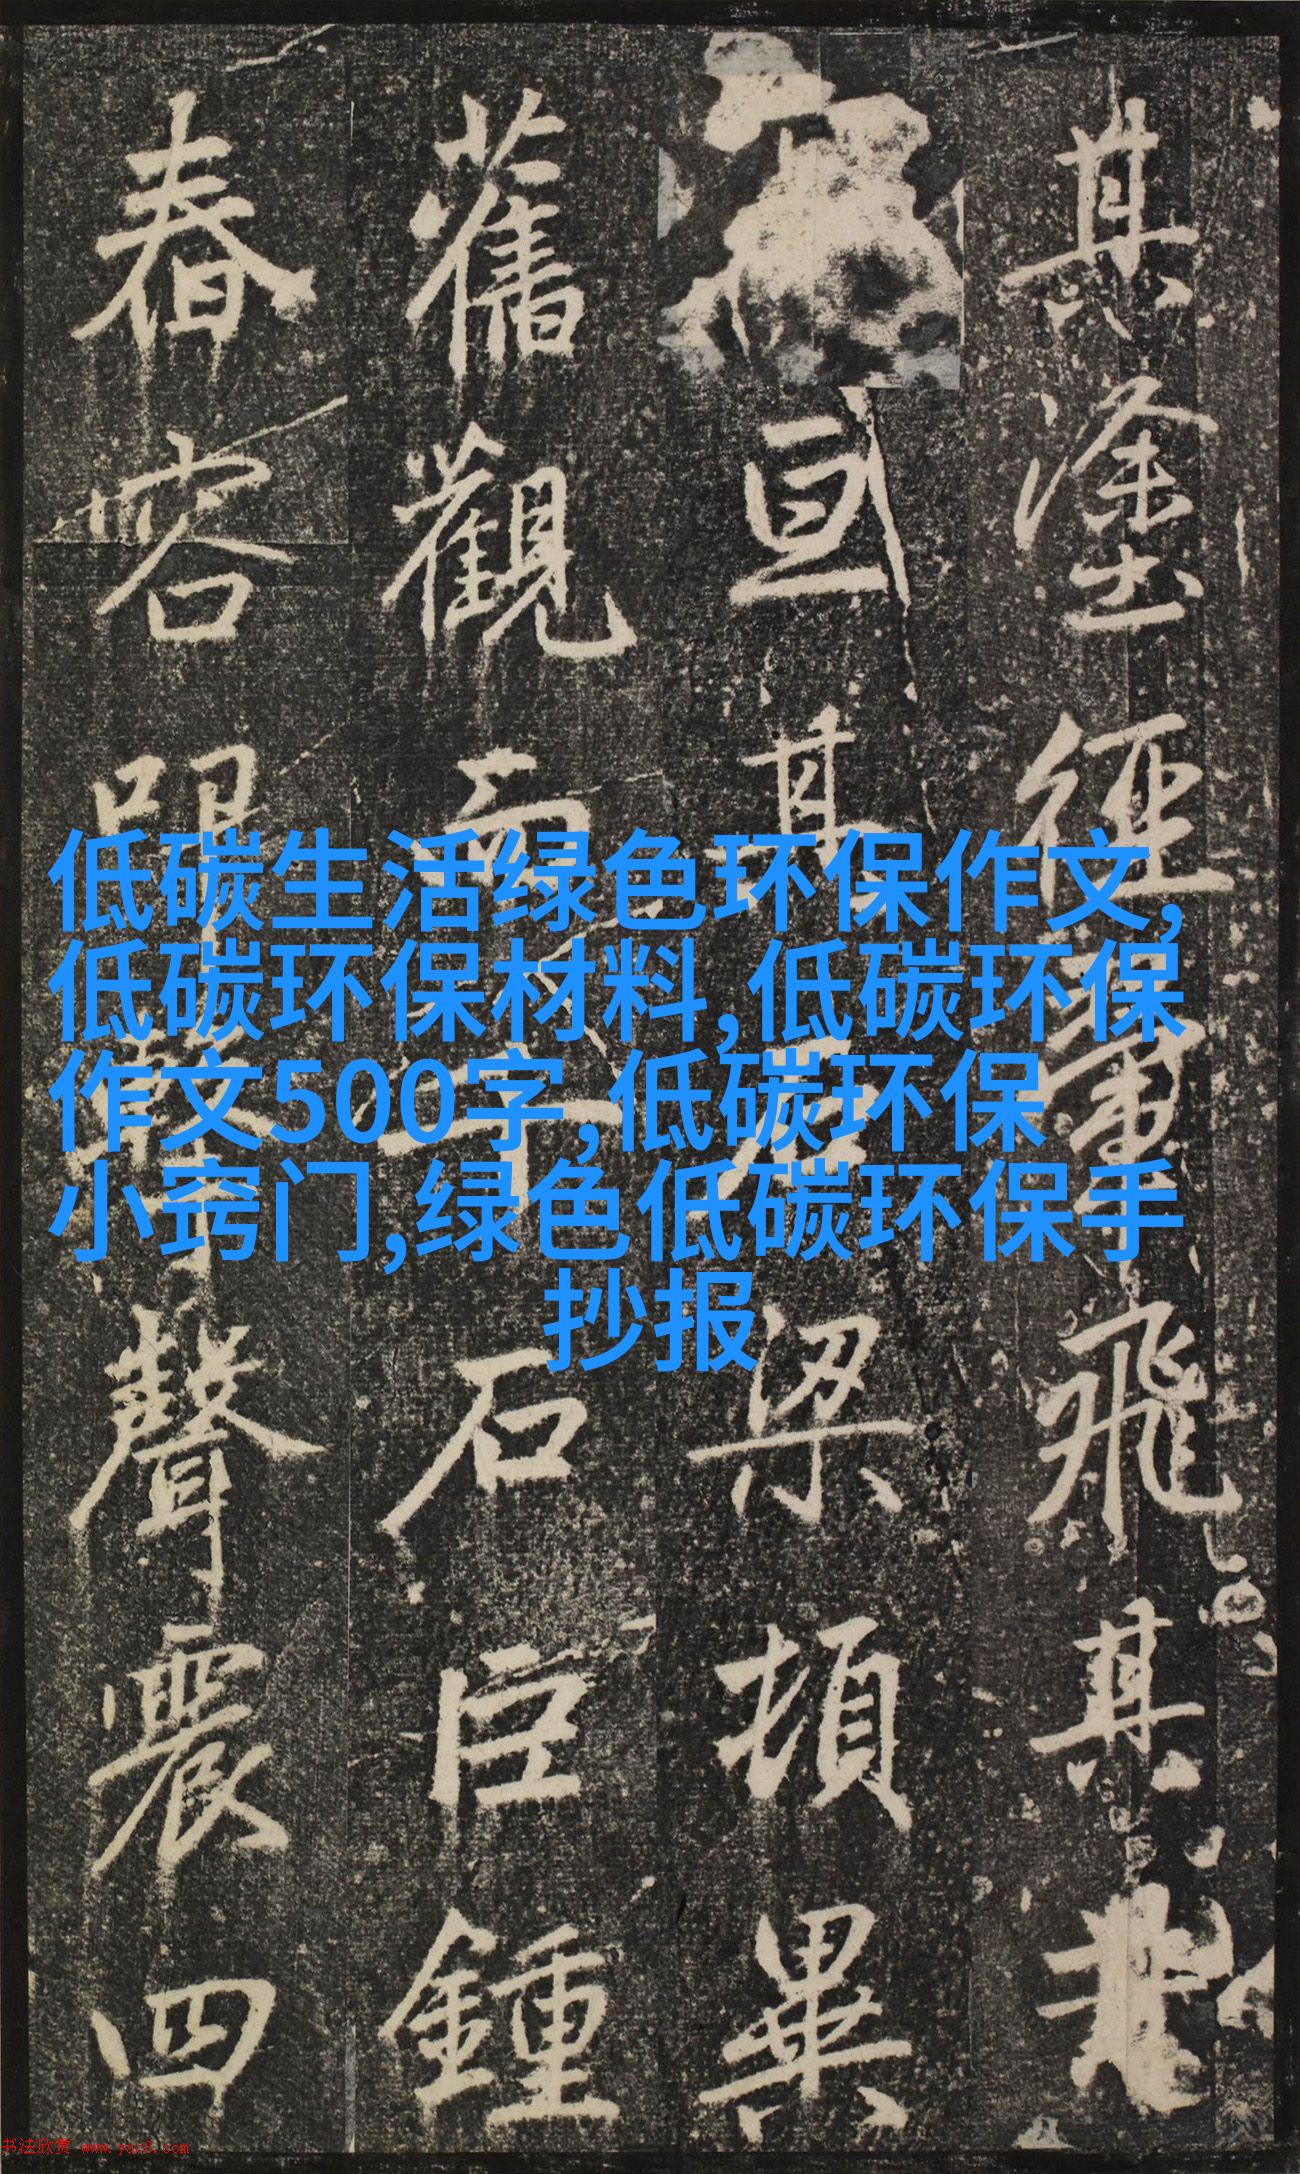 低碳生活绿色环保作文,
低碳环保材料,低碳环保
作文500字,低碳环保
小窍门,绿色低碳环保手
抄报
其塗經
飛其
亘其
梁頓畢
舊觀而
石巨鍾
舂容
聲震四
书法欣赏 www.yac8.com